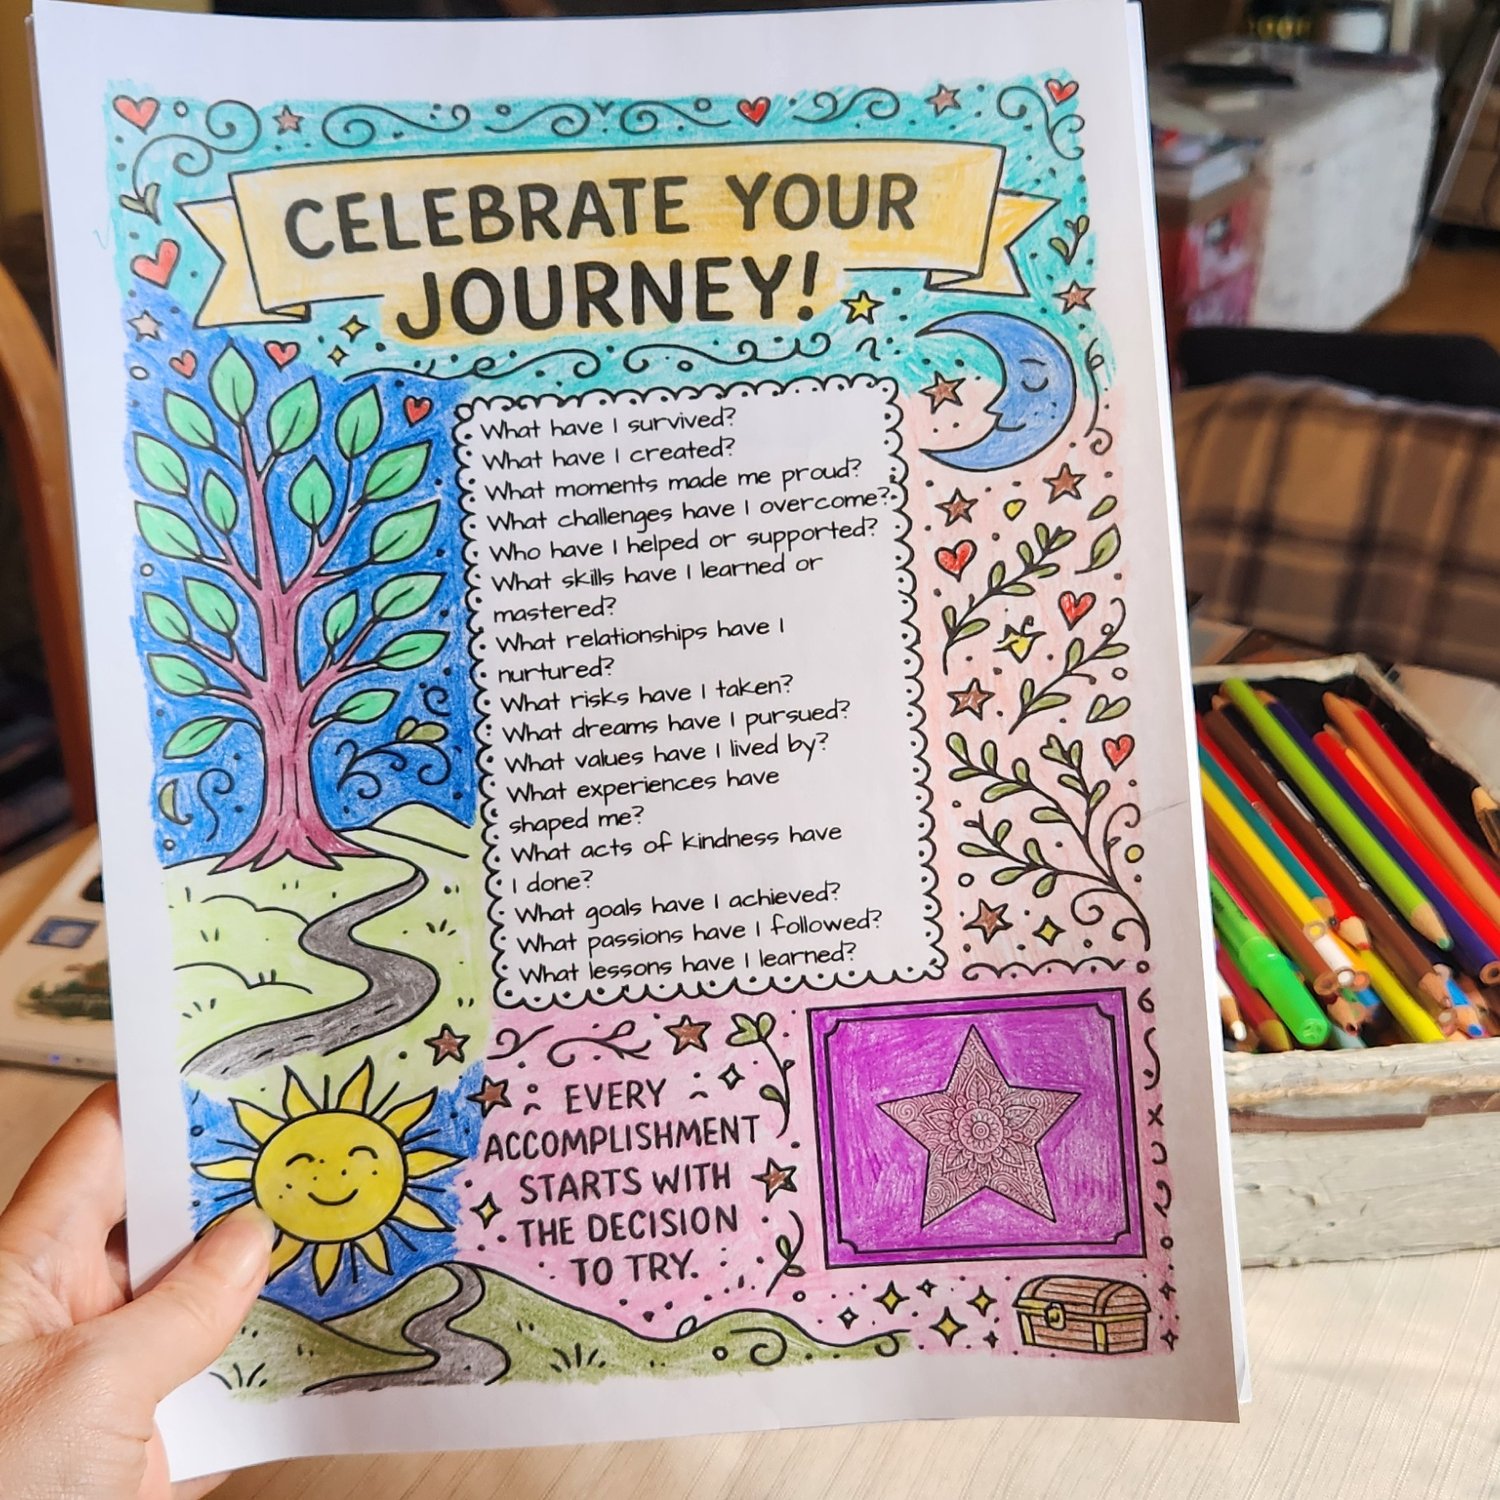 CELEBRATE YOUR
JOURNEY!
What have I survived?
What have I created?
What moments made me proud?
What challenges have I overcome?
Who have I helped or supported?
What skills have I learned or
mastered?
What relationships have I
nurtured?
What risks have I taken?
What dreams have I pursued?
What values have I lived by?
What experiences have
shaped me?
What acts of kindness have
I done?
What goals have I achieved?
What passions have I followed?
What lessons have I learned?
EVERY
ACCOMPLISHMENT
STARTS WITH
THE DECISION
TO TRY.